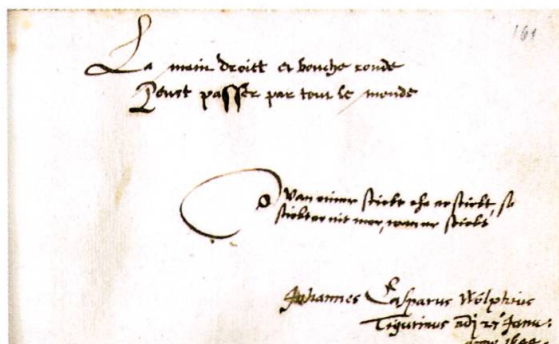 161
La main droict et bouche ronde
Peust passer par tout le monde
Wan einer stirbt ehe er stirbt, so
stirbt er nit mer, wan er stirbt
Johannes Casparus Wolphius
Tigurinus adj 25 Janu:
anno